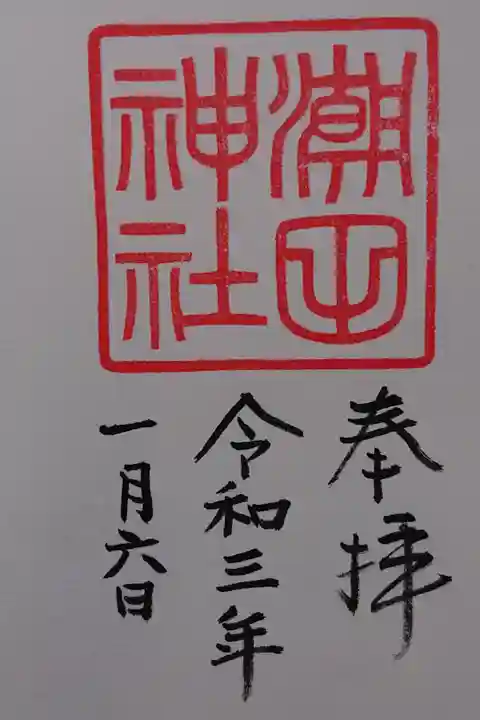 潮田
神社
奉拝
令和三年
一月六日